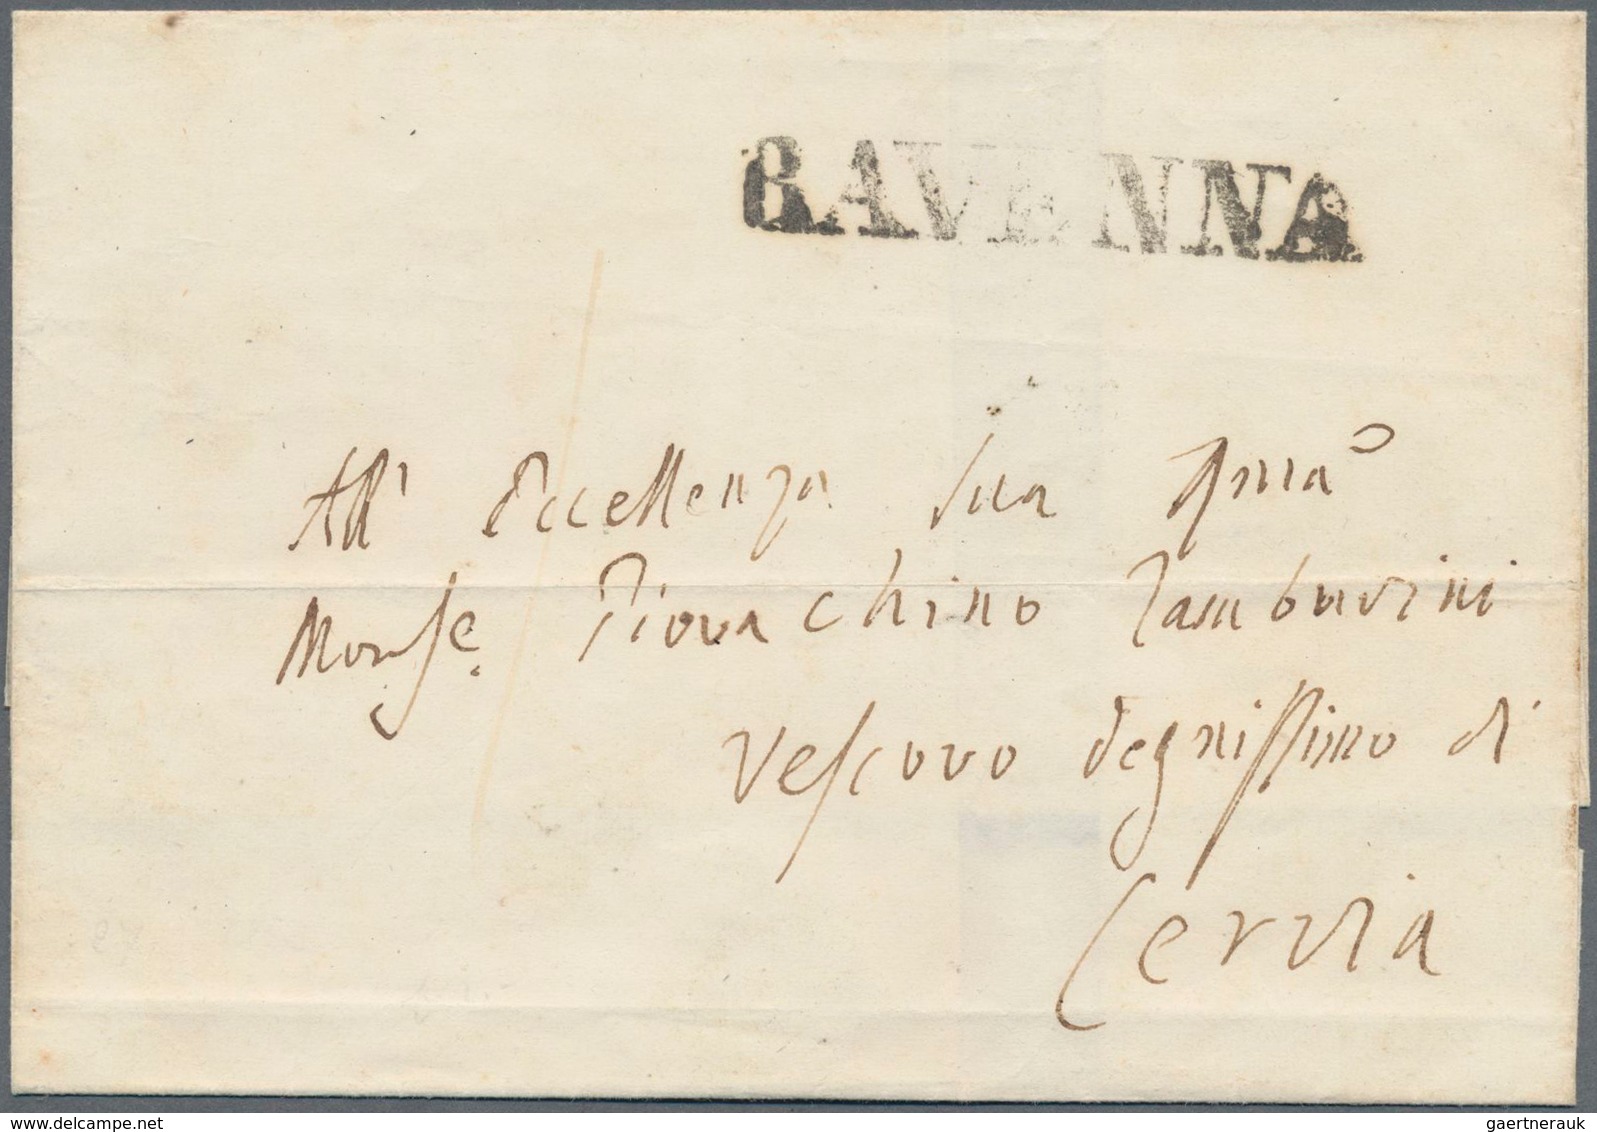 RAVENNA
All' Eccellenza Sua
Giovachino Tamburini
Vescovo degnissimo di
Cervia
delcampe.net
gaertnerauk